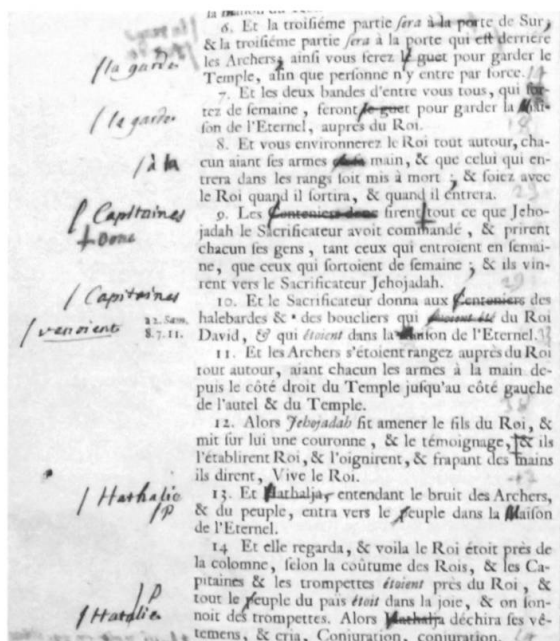 6. Et la troisiéme partie sera à la porte de Sur,
& la troisiéme partie sera à la porte qui est derriére
/ la garde les Archers, ainsi vous ferez le guet pour garder le
Temple, afin que personne n'y entre par force.
7. Et les deux bandes d'entre vous tous, qui sortez
de semaine, feront le guet pour garder la Maison
/ la garde
de l'Eternel, auprès du Roi.
8. Et vous environnerez le Roi tout autour, chacun
/ à la
aiant ses armes main, & que celui qui entrera
dans les rangs soit mis à mort ; & soiez avec
le Roi quand il sortira, & quand il entrera.
Capitaines
9. Les Centeniers donc firent tout ce que Jehojadah
Donc
le Sacrificateur avoit commandé, & prirent
chacun ses gens, tant ceux qui entroient en semaine,
que ceux qui sortoient de semaine ; & ils vinrent
vers le Sacrificateur Jehojadah.
/ Capitaines
10. Et le Sacrificateur donna aux Centeniers des
/ venoient
22. Sam. 8.7.11.
halebardes & * des boucliers qui avoient été du Roi
David, & qui étoient dans la Maison de l'Eternel.
11. Et les Archers s'étoient rangez auprès du Roi
tout autour, aiant chacun les armes à la main depuis
le côté droit du Temple jusqu'au côté gauche
de l'autel & du Temple.
12. Alors Jehojadah fit amener le fils du Roi, &
mit sur lui une couronne, & le témoignage, & ils
l'établirent Roi, & l'oignirent, & frapant des mains
ils dirent, Vive le Roi.
/ Hathalie
13. Et Hathalja, entendant le bruit des Archers,
/ p
& du peuple, entra vers le peuple dans la Maison
de l'Eternel.
14 Et elle regarda, & voila le Roi étoit près de
la colomne, selon la coûtume des Rois, & les Capitaines
& les trompettes étoient près du Roi, &
/ p
tout le peuple du païs étoit dans la joie, & on sonnoit
/ Hatalie
des trompettes. Alors Hathalja déchira ses vêtemens,
& cria, Conjuration, conjuration.